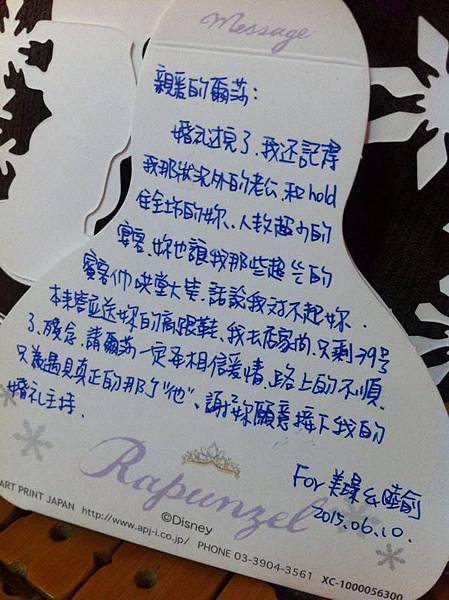 Message
親愛的爾莎：
婚礼过完了，我还記得
我那狀況外的老公，和hold
住全場的妳，人數超少的
宴客，妳也讓我那些超ㄍㄧㄥ的
賓客們哄堂大笑，話說我对不起妳，
本来答应送妳的高跟鞋，我去店家問，只剩39号
了，殘念，請爾莎一定要相信爱情，路上的不順，
只為遇見真正的那个"他"，謝妳願意接下我的
婚礼主持．
For 美 & 睦俞
2015.06.10.
Rapunzel
©Disney
ART PRINT JAPAN http://www.apj-i.co.jp/ PHONE 03-3904-3561 XC-1000056300